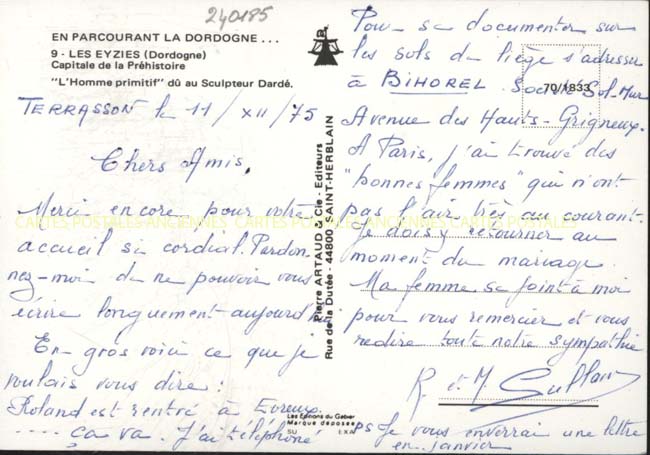 240185
EN PARCOURANT LA DORDOGNE ...
9 - LES EYZIES (Dordogne)
Capitale de la Préhistoire
"L'Homme primitif" dû au Sculpteur Dardé.
TERRASSON le 11/XII/75
Chers Amis.
Merci encore pour votre
accueil si cordial. Pardon-
nez-moi de ne pouvoir vous
écrire longuement aujourd'hui
En gros voici ce que je
voulais vous dire :
Roland est rentré à Evreux
.... ça va. J'ai téléphoné
Pierre ARTAUD & Cie - Editeurs
Rue de la Dutée - 44800 SAINT-HERBLAIN
Les Editions du Gabier
Marque déposée
SU
Pour se documenter sur
les sols de liège s'adresser
à BIHOREL. Société Sol-Mur
70/1833
Avenue des Hauts-Grigneux.
A Paris, j'ai trouvé des
"bonnes femmes" qui n'ont
pas l'air très au courant.
Je dois y retourner au
moment du mariage.
Ma femme se joint à moi
pour vous remercier et vous
redire toute notre sympathie
R. et M.
ps Je vous enverrai une lettre
en janvier
CARTES POSTALES ANCIENNES CARTES POSTALES ANCIENNES CARTES POSTALES